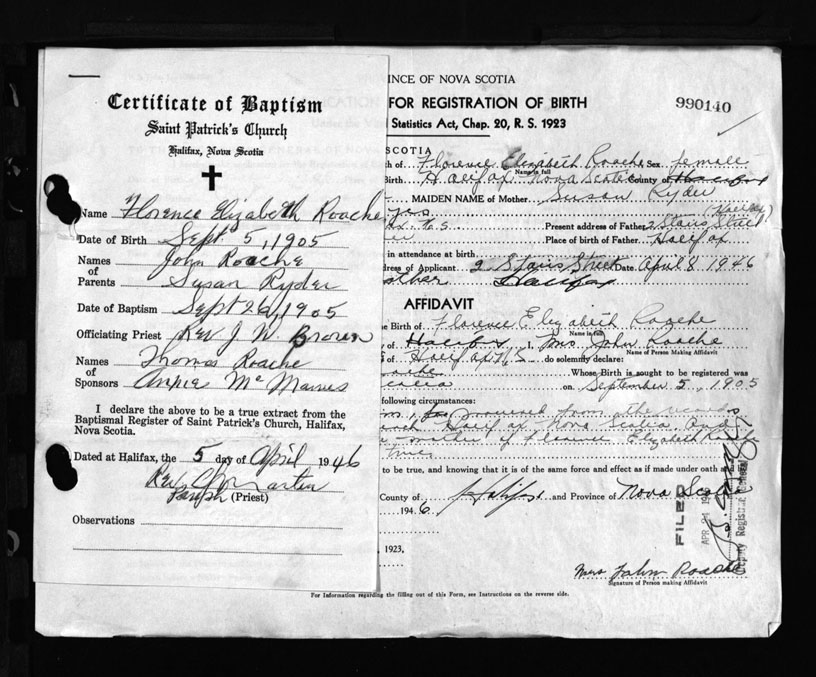 Certificate of Baptism
Saint Patrick's Church
Halifax, Nova Scotia
Name Florence Elizabeth Roache
Date of Birth Sept. 5, 1905
Names of Parents John Roache
Susan Ryder
Date of Baptism Sept 26, 1905
Officiating Priest Rev J W Brown
Names of Sponsors Thomas Roache
Annie Mc Manus
I declare the above to be a true extract from the
Baptismal Register of Saint Patrick's Church, Halifax,
Nova Scotia.
Dated at Halifax, the 5 day of April 1946
Rev. Martin
(Priest)
Observations
INCE OF NOVA SCOTIA
FOR REGISTRATION OF BIRTH
990140
Statistics Act, Chap. 20, R. S. 1923
SCOTIA
th of Florence Elizabeth Roache Sex female
Name in full
Birth Halifax Nova Scotia County of Halifax
MAIDEN NAME of Mother Susan Ryder
N.S. Present address of Father 2 Stairs Street
Place of birth of Father Halifax
in attendance at birth
dress of Applicant 2 Stairs Street Date April 8 1946
other Halifax
AFFIDAVIT
e Birth of Florence Elizabeth Roache
Name in full
of Halifax I, Mrs John Roache
Name of Person Making Affidavit
of Halifax N S do solemnly declare:
Roache Whose Birth is sought to be registered was
Scotia on September 5, 1905
following circumstances:
removed from other records
Halifax Nova Scotia and
mother of Florence Elizabeth
to be true, and knowing that it is of the same force and effect as if made under oath
County of Halifax and Province of Nova Scotia
1946
FILED
APR 24 19
Deputy Registrar General
, 1923.
Mrs John Roache
Signature of Person making Affidavit
For Information regarding the filling out of this Form, see Instructions on the reverse side.